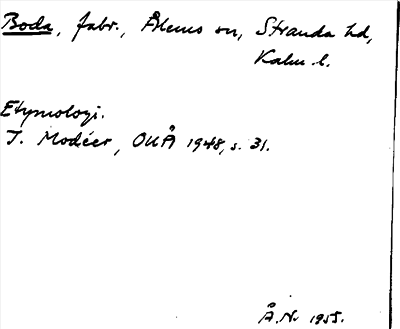 Boda, fabr., Ålems sn, Stranda hd,
Kalm. l.
Etymologi.
I. Modéer, OUÅ 1948, s. 31.
Å.N. 1955.